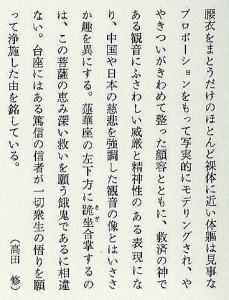 腰衣をまとうだけのほとんど裸体に近い体軀は見事な
プロポーションをもって写実的にモデリングされ、や
やきついがきわめて整った顔容とともに、救済の神で
ある観音にふさわしい威厳と精神性のある表現にな
り、中国や日本の慈悲を強調した観音の像とはいささ
か趣を異にする。蓮華座の左下方に跪坐合掌するの
は、この菩薩の恵み深い救いを願う餓鬼であるに相違
ない。台座にはある篤信の信者が一切衆生の悟りを願
って浄施した由を銘している。
（高田　修）